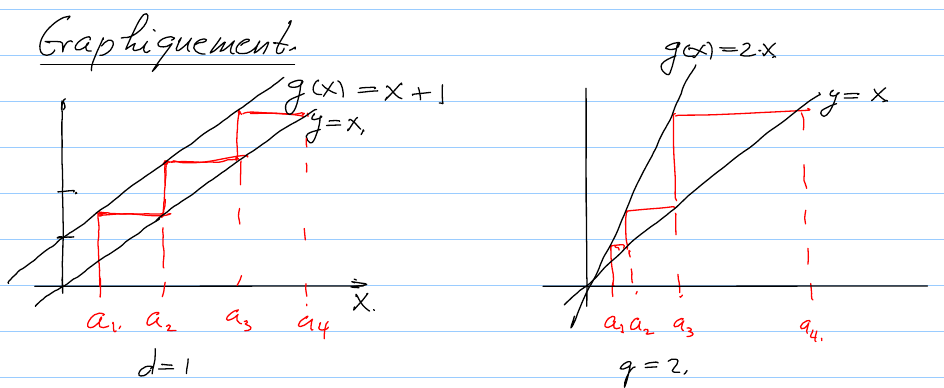 Graphiquement.
g(x) = x + 1
y = x,
x.
a₁. a₂ a₃ a₄
d = 1
g(x) = 2·x
y = x
a₁ a₂ a₃ a₄.
q = 2,